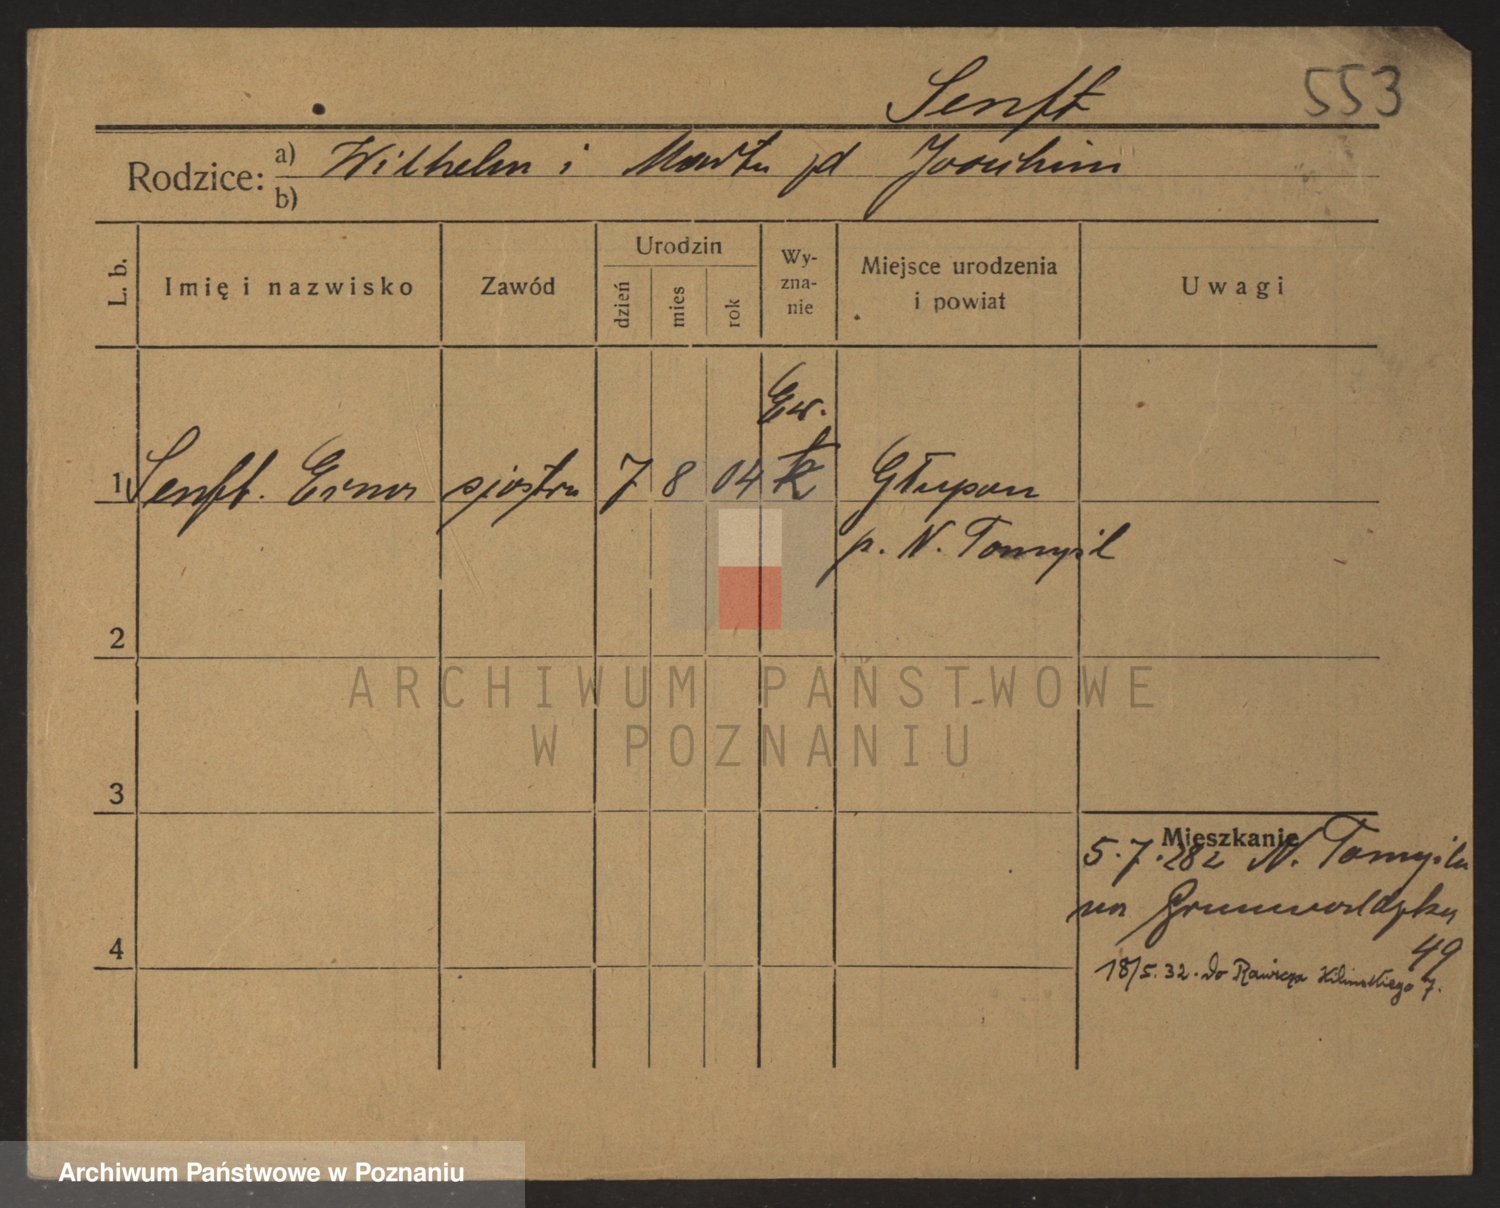 Senft 553
Rodzice: a) Wilhelm i Marta zd Joachim
b)
L. b. Imię i nazwisko Zawód Urodzin dzień mies rok Wyznanie Miejsce urodzenia i powiat Uwagi
Ew.
1 Senft Erna siostra 7 8 04 k Głupon
p. N. Tomyśl
2
ARCHIWUM PAŃSTWOWE
W POZNANIU
3
Mieszkanie
5.7.28 z N. Tomyśla
na Grunwaldzką
49
4
18/5.32. do Rawicza Kilińskiego 7.
Archiwum Państwowe w Poznaniu